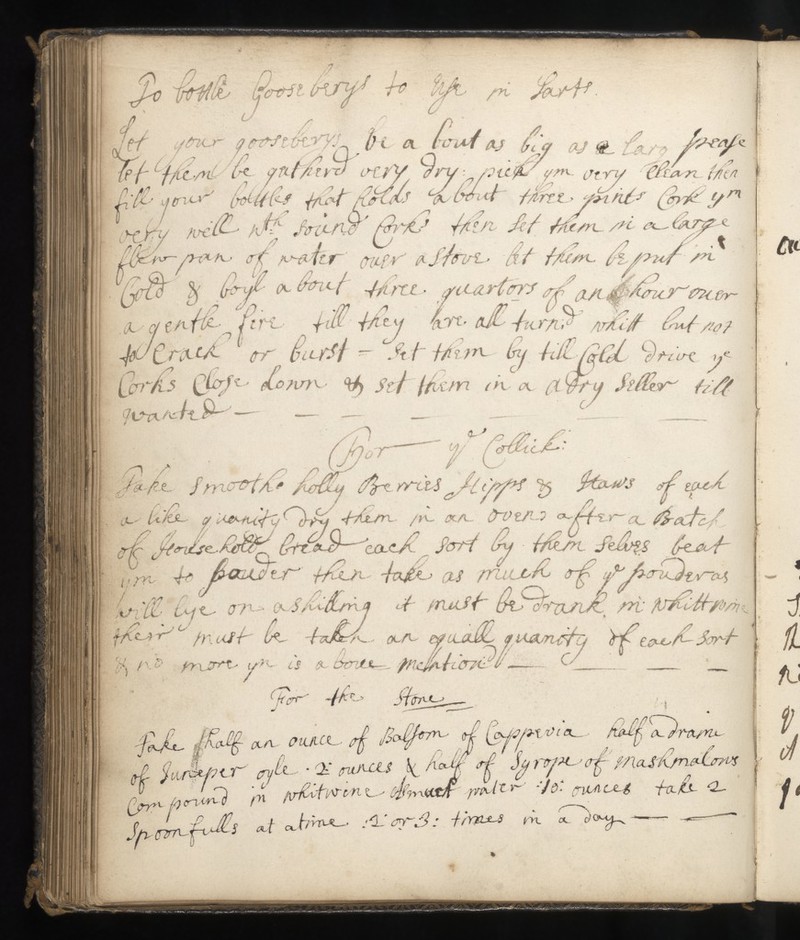 To bottle Gooseberys to Use in Tarts.
Let your gooseberys be a bout as big as a larg pease
let them be gatherd very dry: pick ym very Clean then
fill your bottles that Holds about three pints Cork ym
very well wth sound Corks then Set them in a large
Stew pan of water over a Stove let them be put in
Cold & boyl about three quartors of an hour over
a gentle fire till they are all turnd whitt but not
to Crack or burst - Set them by till Cold drive ye
Corks Close down & set them in a adry Seller till
wanted
For ye Collick:
Take Smooth Holly Berries Hipps & Haws of each
a like quanity Dry them in an oven after a Batch
of Household bread each Sort by them Selves beat
ym to pouder then take as much of ye pouder as
will lye on a shilling it must be Drank in Whitt wine
their must be taken an equall quanity of each Sort
& no more yn is above mention'd
For the Stone
Take half an ounce of Balsom of Cappevia half a dram
of Juneper oyle . 2: ounces & half of Syrope of mashmalows
Compound in whitwine water :10: ounces take 2
Spoonfulls at a time :2: or 3: times in a Day